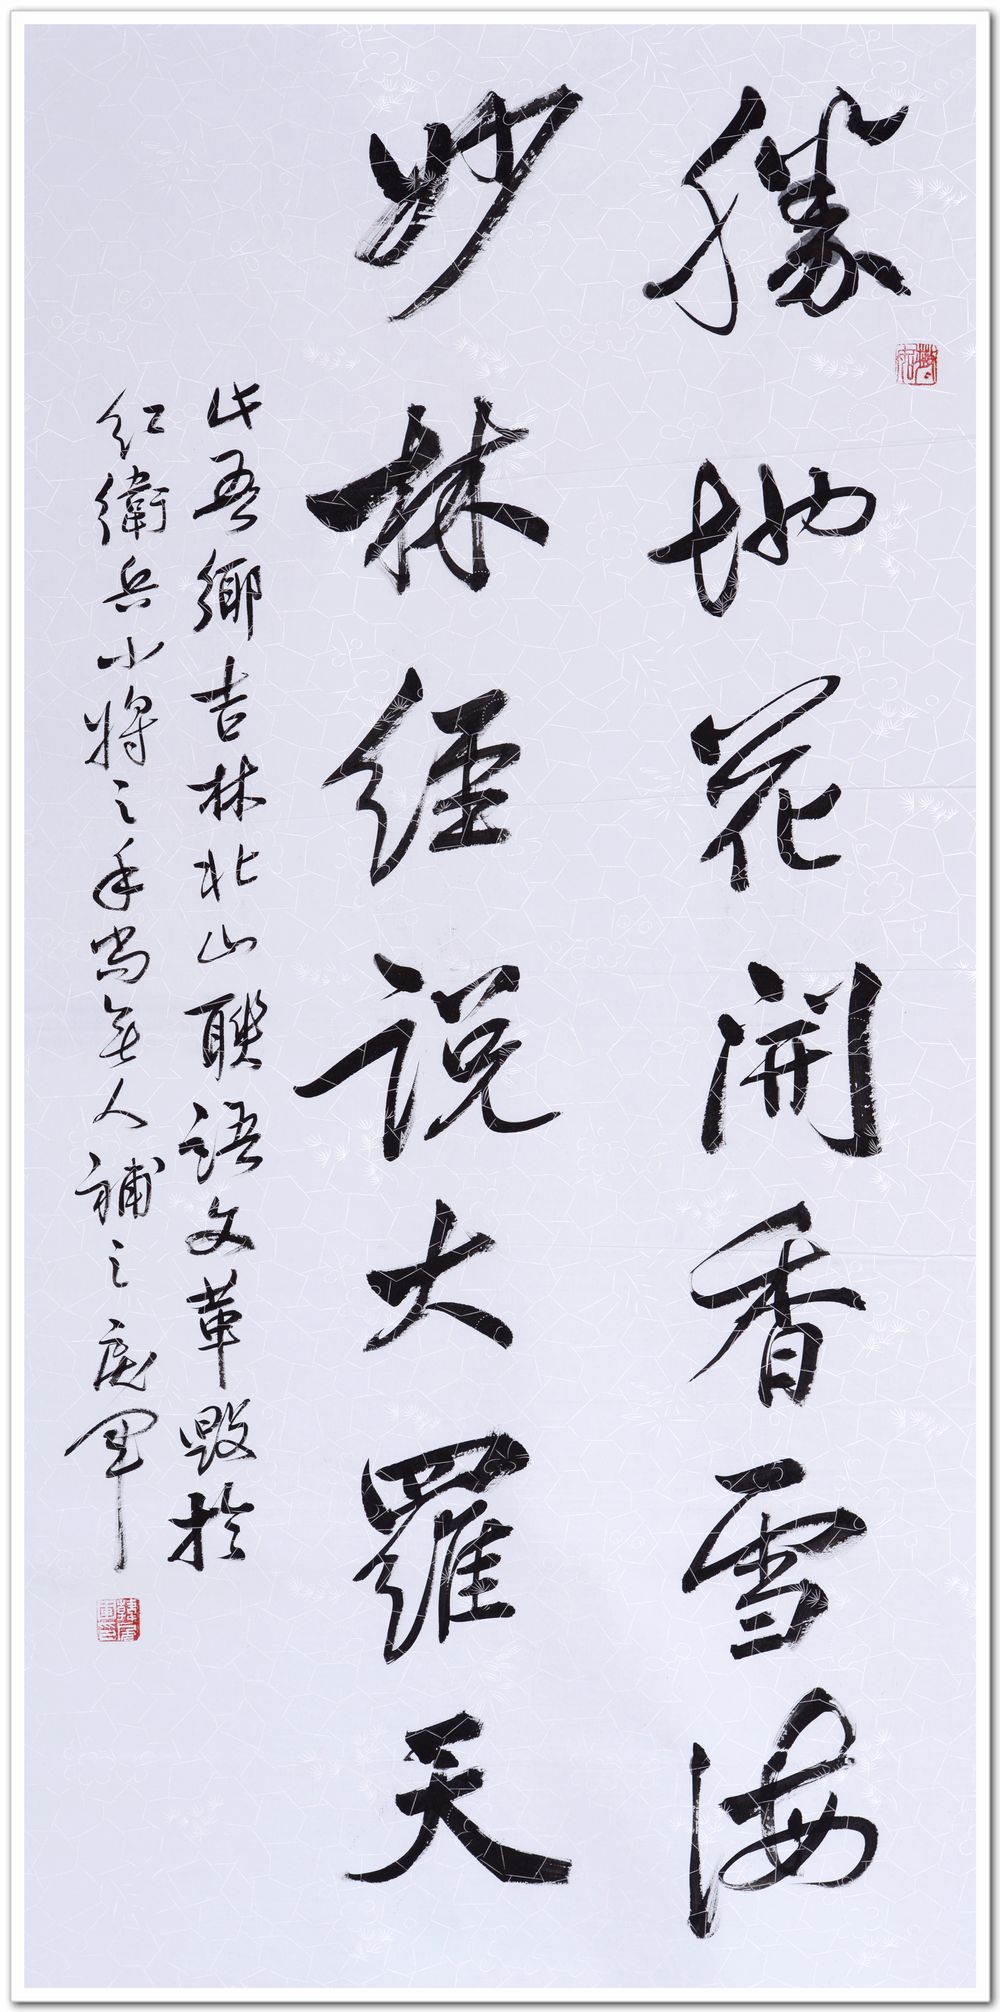 勝地花開香雪海
妙林经説大羅天
此吾鄉吉林北山聯語文革毀於
红衛兵小將之手尚無人補之